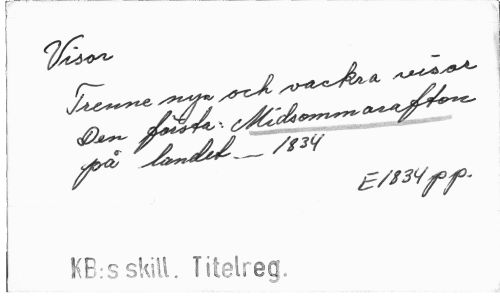 Visor
Trenne nya och vackra visor
Den första: Midsommarafton
på landet — 1834
E1834pp.
KB:s skill. Titelreg.